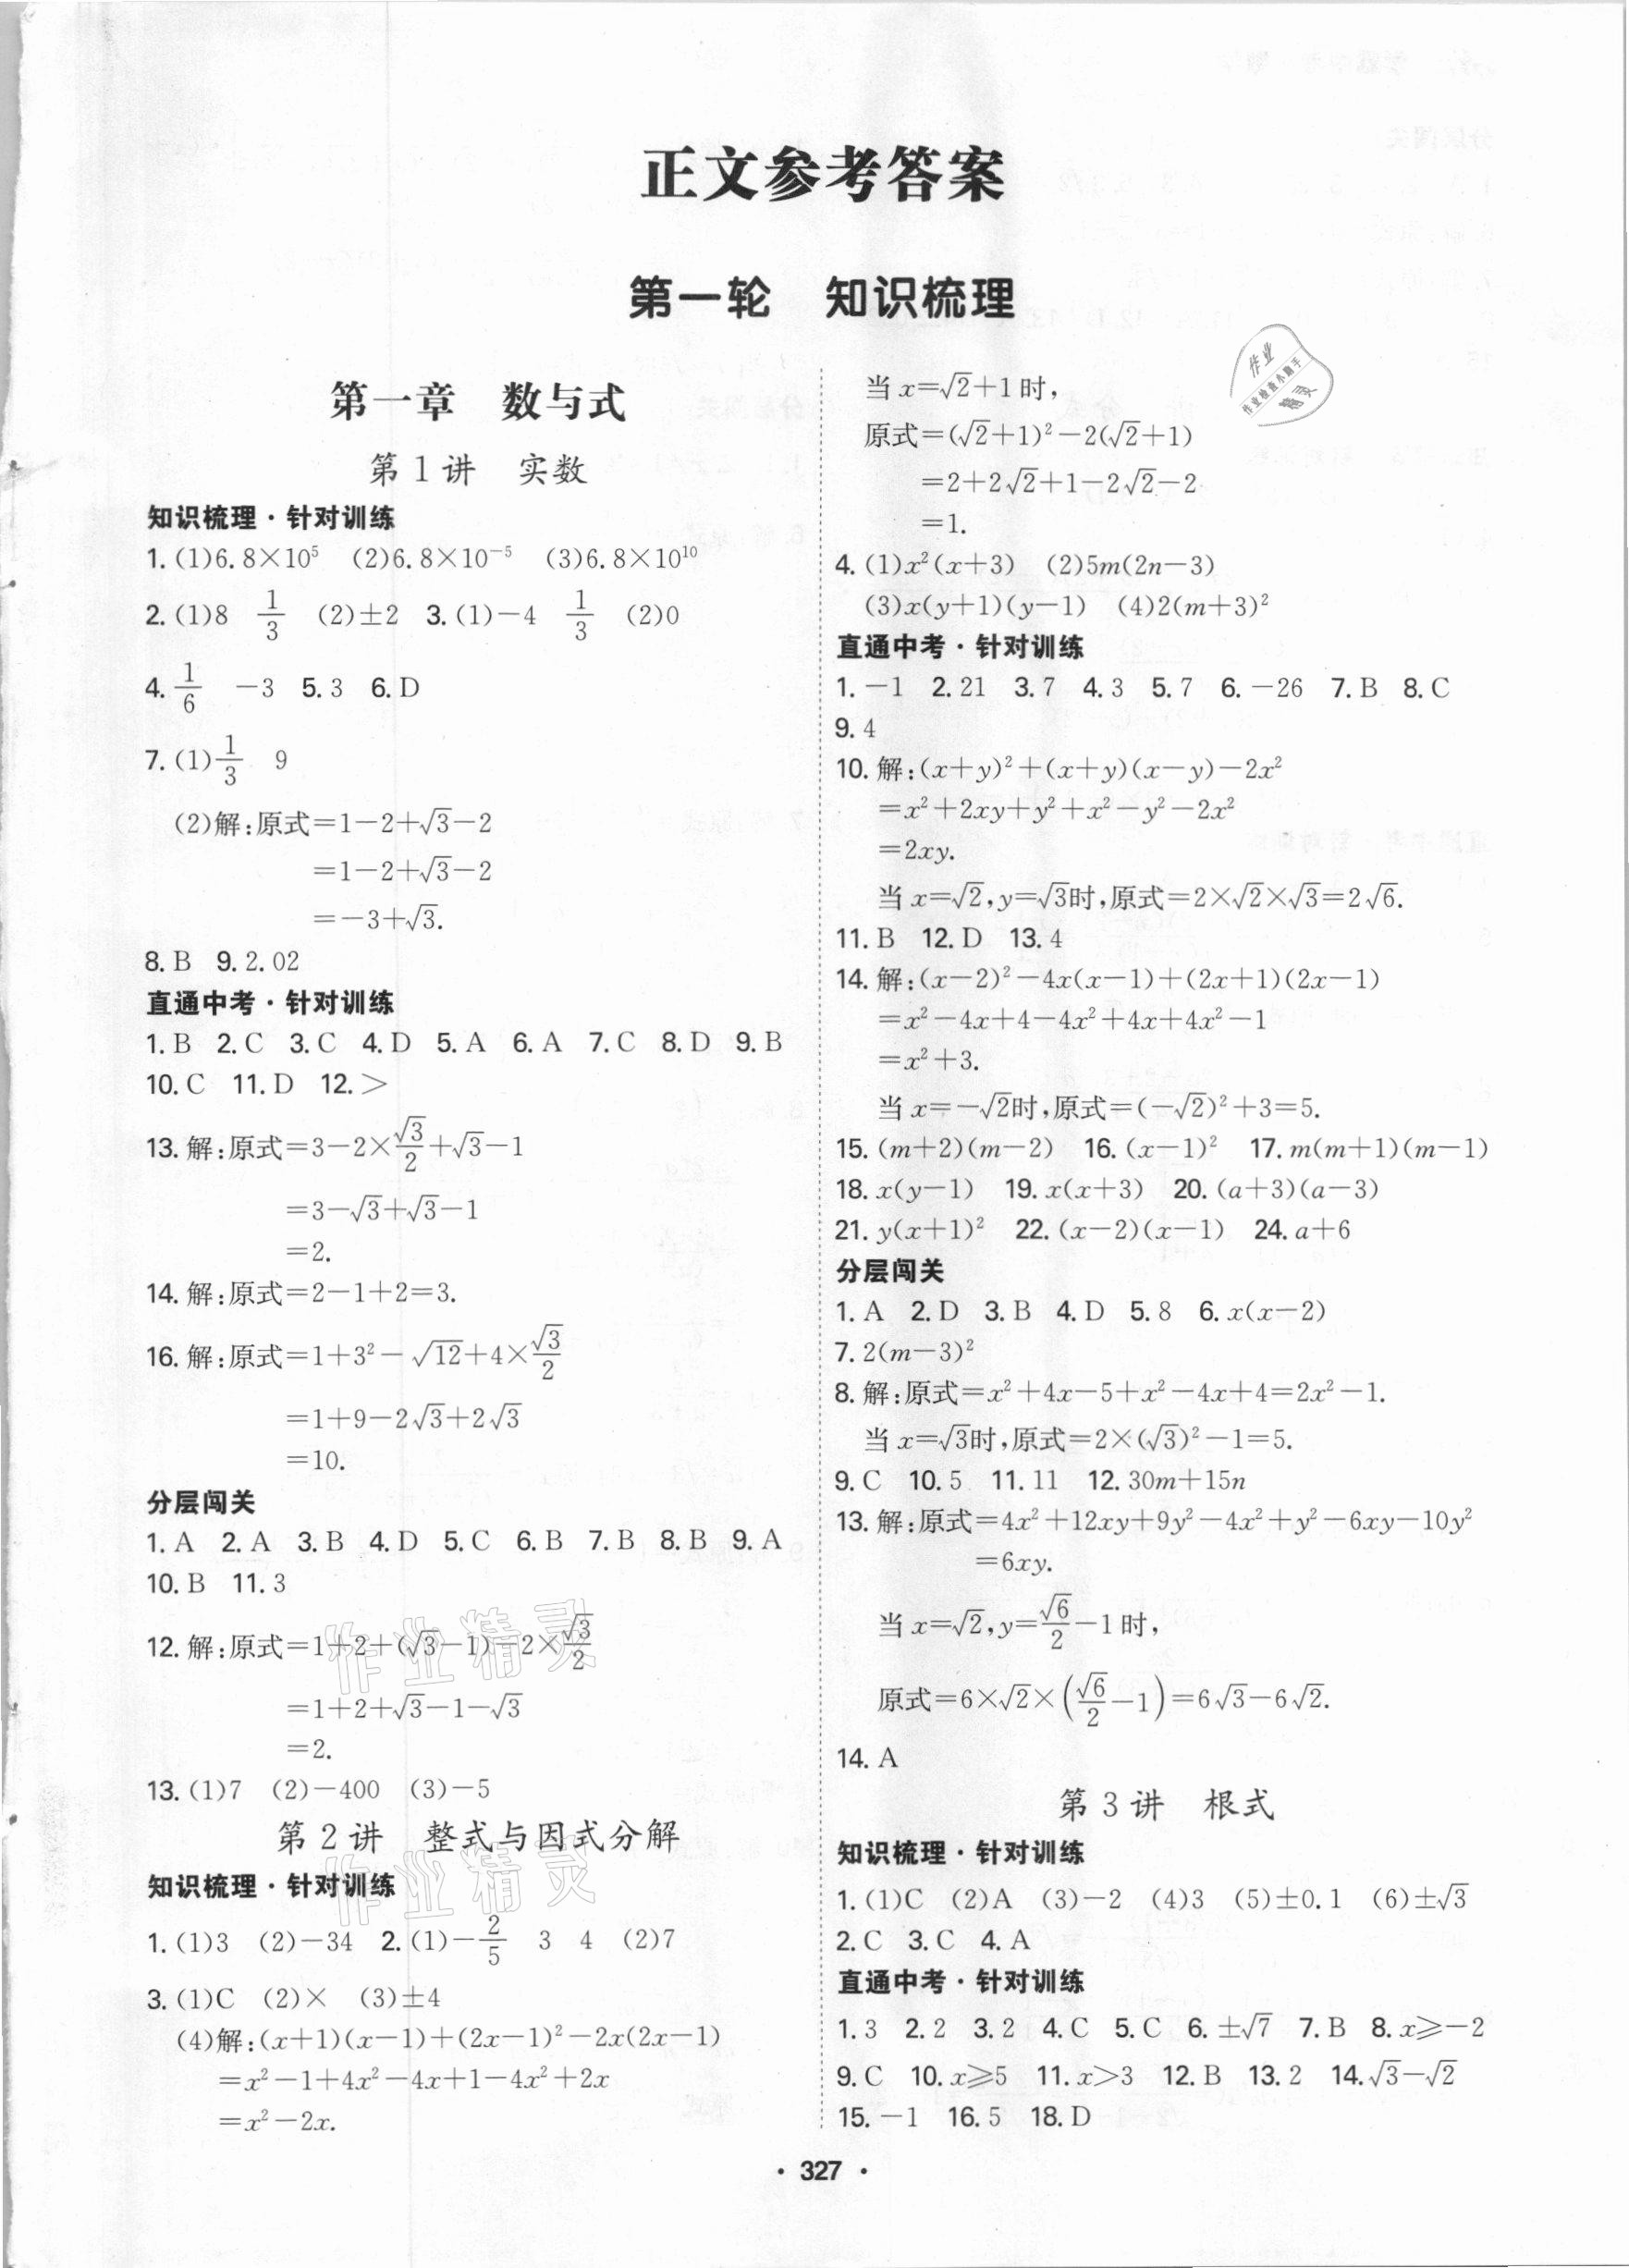 正文参考答案
第一轮 知识梳理
第一章 数与式
第 1 讲 实数
知识梳理·针对训练
1. (1)6.8×10⁵ (2)6.8×10⁻⁵ (3)6.8×10¹⁰
2. (1)8 1/3 (2)±2 3. (1)−4 1/3 (2)0
4. 1/6 −3 5. 3 6. D
7. (1)1/3 9
(2)解:原式=1−2+√3−2
=1−2+√3−2
=−3+√3.
8. B 9. 2.02
直通中考·针对训练
1. B 2. C 3. C 4. D 5. A 6. A 7. C 8. D 9. B
10. C 11. D 12. >
13. 解:原式=3−2×√3/2+√3−1
=3−√3+√3−1
=2.
14. 解:原式=2−1+2=3.
16. 解:原式=1+3²−√12+4×√3/2
=1+9−2√3+2√3
=10.
分层闯关
1. A 2. A 3. B 4. D 5. C 6. B 7. B 8. B 9. A
10. B 11. 3
12. 解:原式=1+2+(√3−1)−2×√3/2
=1+2+√3−1−√3
=2.
13. (1)7 (2)−400 (3)−5
第 2 讲 整式与因式分解
知识梳理·针对训练
1. (1)3 (2)−34 2. (1)−2/5 3 4 (2)7
3. (1)C (2)× (3)±4
(4)解:(x+1)(x−1)+(2x−1)²−2x(2x−1)
=x²−1+4x²−4x+1−4x²+2x
=x²−2x.
当 x=√2+1 时,
原式=(√2+1)²−2(√2+1)
=2+2√2+1−2√2−2
=1.
4. (1)x²(x+3) (2)5m(2n−3)
(3)x(y+1)(y−1) (4)2(m+3)²
直通中考·针对训练
1. −1 2. 21 3. 7 4. 3 5. 7 6. −26 7. B 8. C
9. 4
10. 解:(x+y)²+(x+y)(x−y)−2x²
=x²+2xy+y²+x²−y²−2x²
=2xy.
当 x=√2,y=√3时,原式=2×√2×√3=2√6.
11. B 12. D 13. 4
14. 解:(x−2)²−4x(x−1)+(2x+1)(2x−1)
=x²−4x+4−4x²+4x+4x²−1
=x²+3.
当 x=−√2时,原式=(−√2)²+3=5.
15. (m+2)(m−2) 16. (x−1)² 17. m(m+1)(m−1)
18. x(y−1) 19. x(x+3) 20. (a+3)(a−3)
21. y(x+1)² 22. (x−2)(x−1) 24. a+6
分层闯关
1. A 2. D 3. B 4. D 5. 8 6. x(x−2)
7. 2(m−3)²
8. 解:原式=x²+4x−5+x²−4x+4=2x²−1.
当 x=√3时,原式=2×(√3)²−1=5.
9. C 10. 5 11. 11 12. 30m+15n
13. 解:原式=4x²+12xy+9y²−4x²+y²−6xy−10y²
=6xy.
当 x=√2,y=√6/2−1 时,
原式=6×√2×(√6/2−1)=6√3−6√2.
14. A
第 3 讲 根式
知识梳理·针对训练
1. (1)C (2)A (3)−2 (4)3 (5)±0.1 (6)±√3
2. C 3. C 4. A
直通中考·针对训练
1. 3 2. 2 3. 2 4. C 5. C 6. ±√7 7. B 8. x⩾−2
9. C 10. x⩾5 11. x>3 12. B 13. 2 14. √3−√2
15. −1 16. 5 18. D
· 327 ·
作业
作业检查小助手
精灵
作业精灵
作业精灵